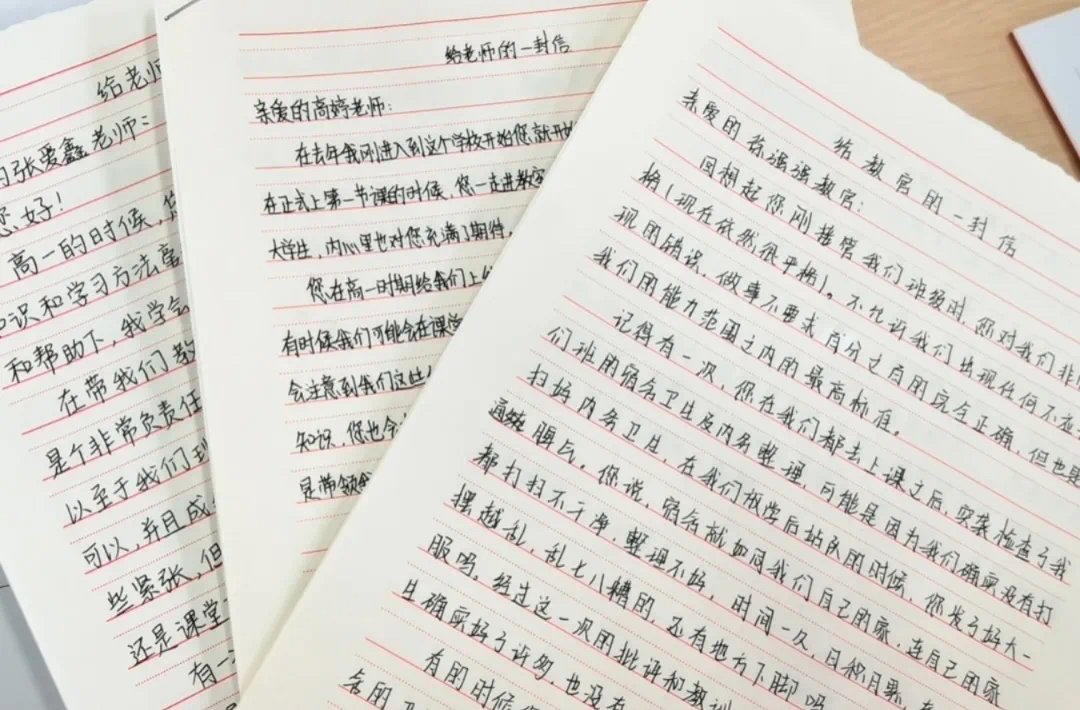 给老师
张爱鑫老师：
您好！
高一的时候，
识和学习方法
和帮助下，我学会
在带我们
是个非常负责任
以至于我们
可以，并且成
些紧张，但
还是课堂
有一
给老师的一封信
亲爱的高婷老师：
在去年我刚进入到这个学校开始您就开始
在正式上第一节课的时候，您一走进教室
大学生，内心里也对您充满了期待。
您在高一时期给我们上
有时候我们可能会在课堂
会注意到我们这些
知识，您也会
是带领
给教官的一封信
亲爱的 强强教官：
回想起您刚接管我们班级时，您对我们非
格（现在依然很严格）。不允许我们出现任何不应
现的错误，做事不要求百分之百的完全正确，但也是
我们的能力范围之内的最高标准。
记得有一次，您在我们都去上课之后，突袭检查了我
们班的宿舍卫生及内务整理，可能是因为我们确实没有打
扫好内务卫生，在我们放学后站队的时候，您发了好大一
通脾气。您说，宿舍就如同我们自己的家，连自己的家
都打扫不干净，整理不好，时间一久，日积月累，
摆越乱，乱七八糟的，还有地方下脚吗
服吗，经过这一次的批评和教训
生确实好了许多，也没有
有的时候
舍的卫